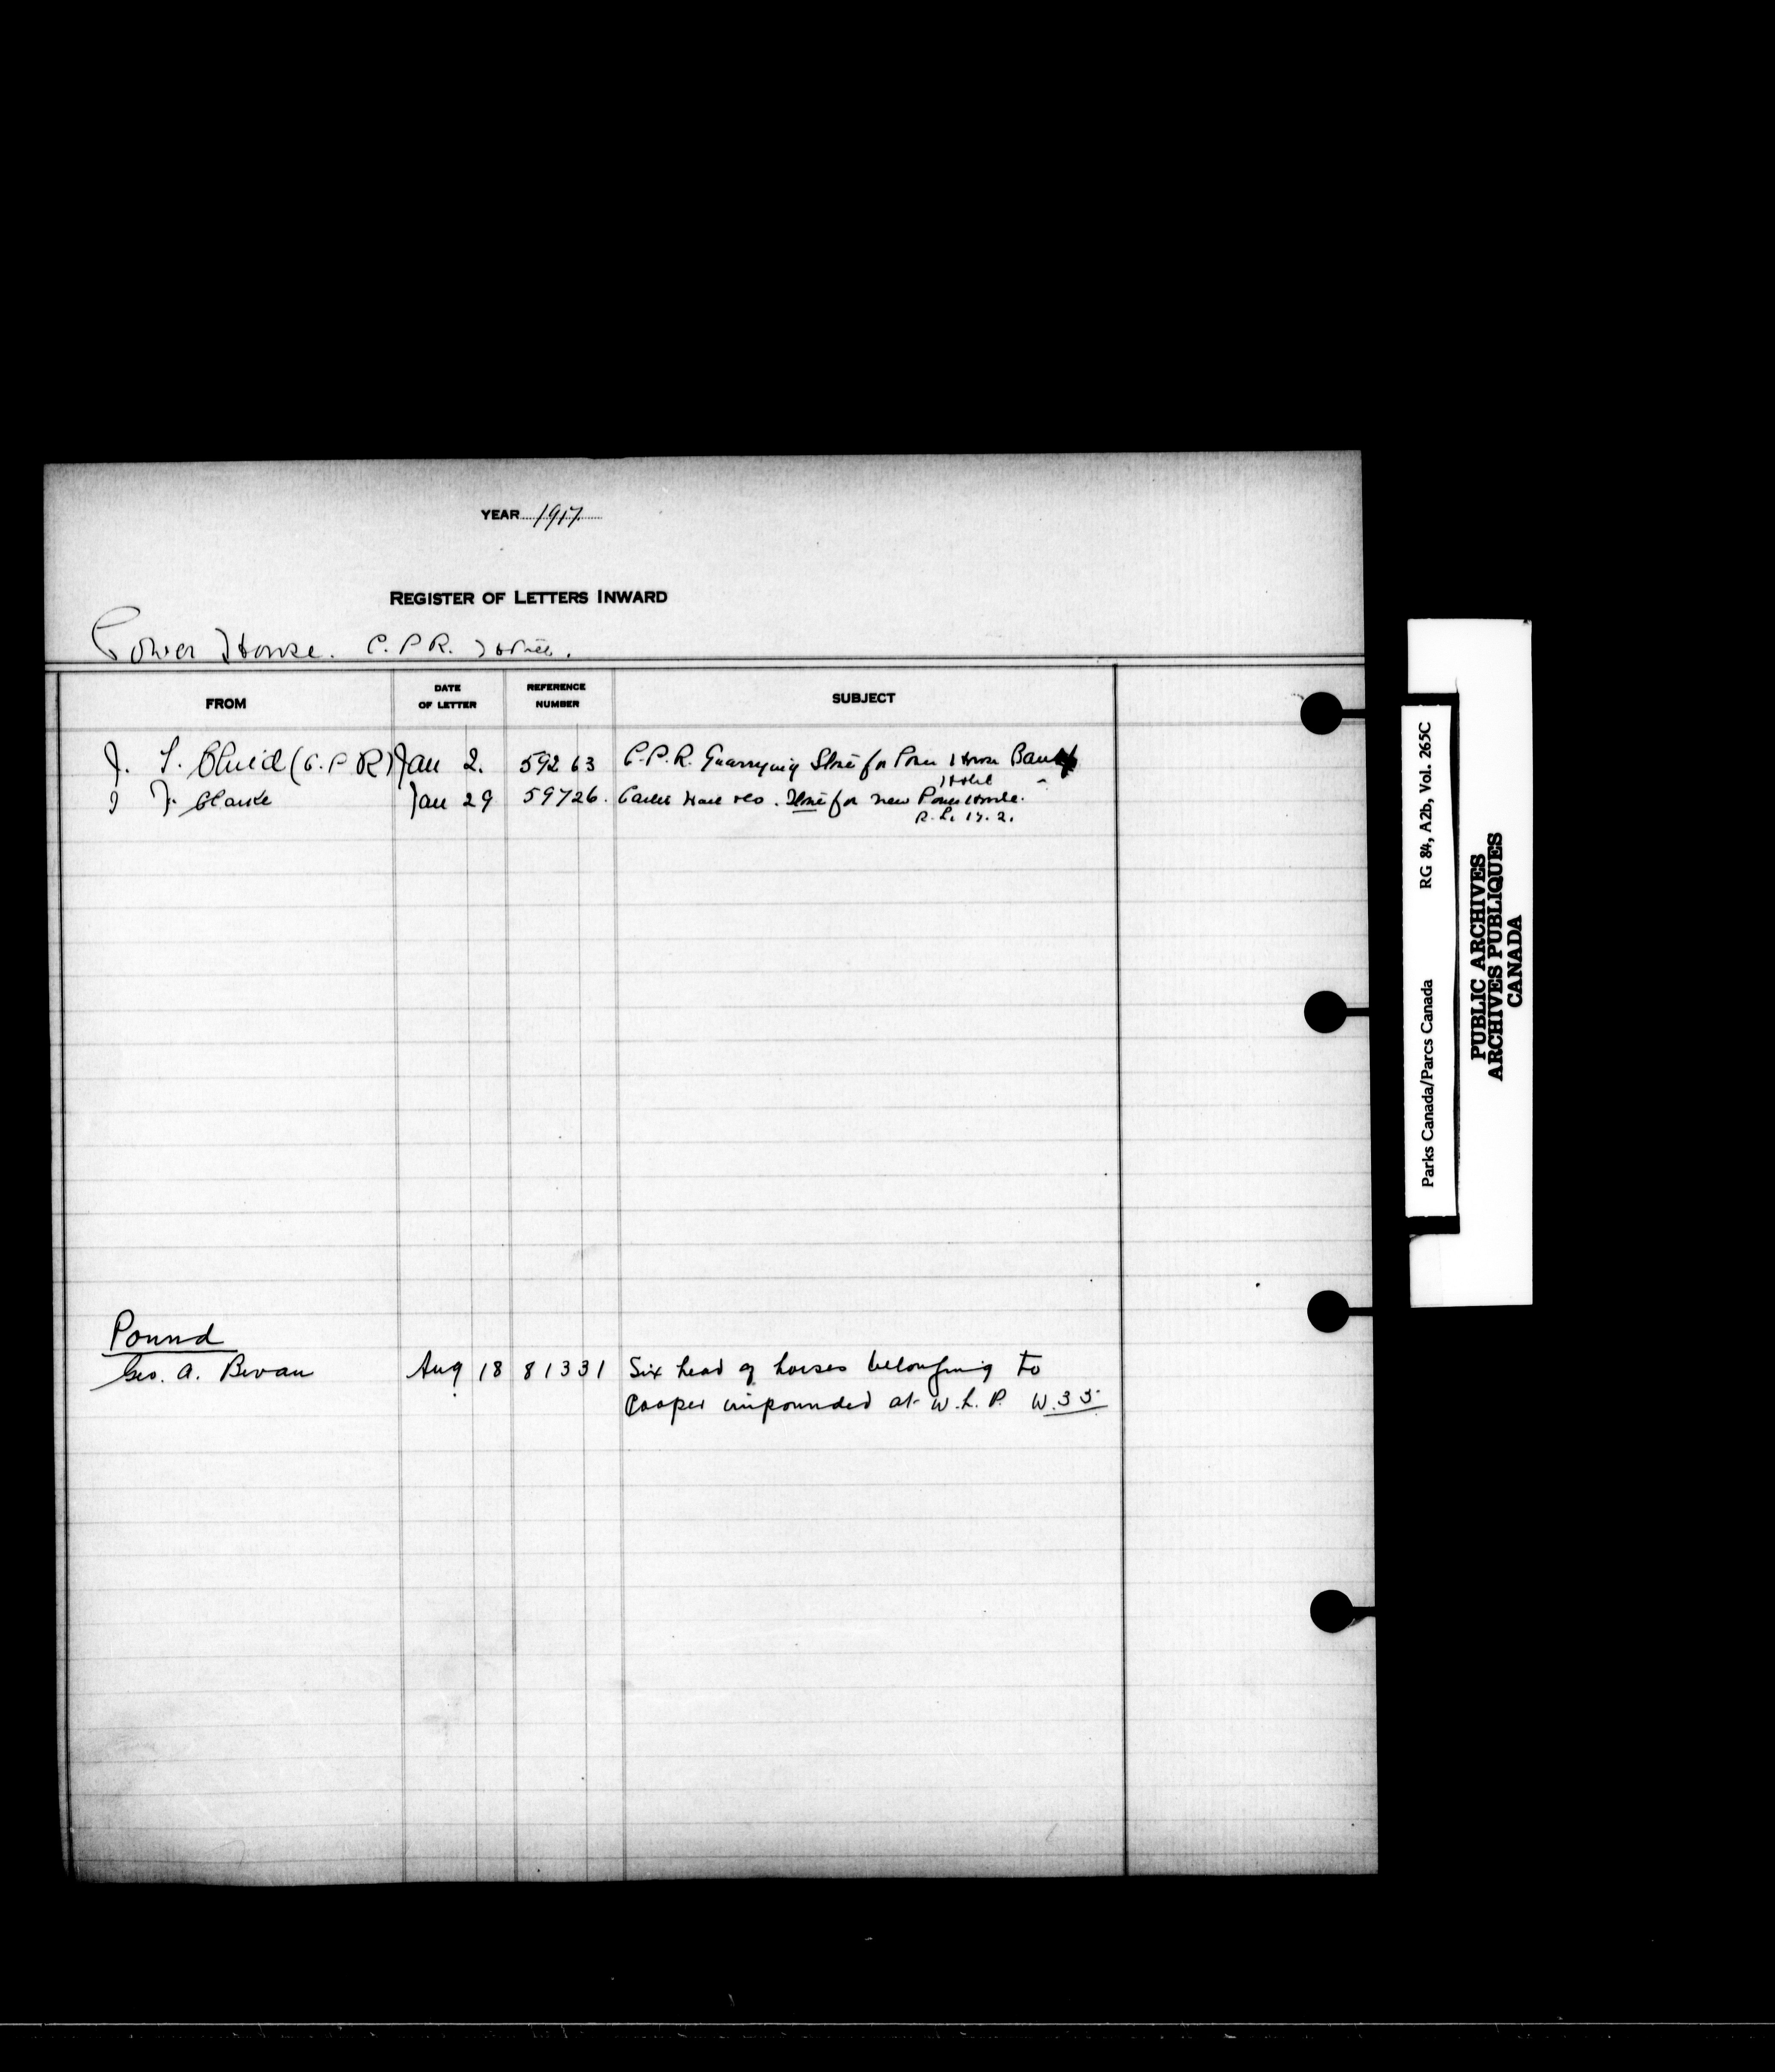 YEAR 1917
REGISTER OF LETTERS INWARD
Power House. C. P. R. Hotel.
FROM
DATE OF LETTER
REFERENCE NUMBER
SUBJECT
J. (C. P. R) Jan 2. 59263 C.P.R. Quarrying Stone for Power House Banff
Hotel
Clarke Jan 29 59726. Stone for new Power House.
R. L. 17. 2.
Pound
Geo. A. Bevan Aug 18 81331 Six head of horses belonging to
Cooper impounded at W. L. P. W.35
Parks Canada/Parcs Canada RG 84, A2b, Vol. 265C
PUBLIC ARCHIVES
ARCHIVES PUBLIQUES
CANADA